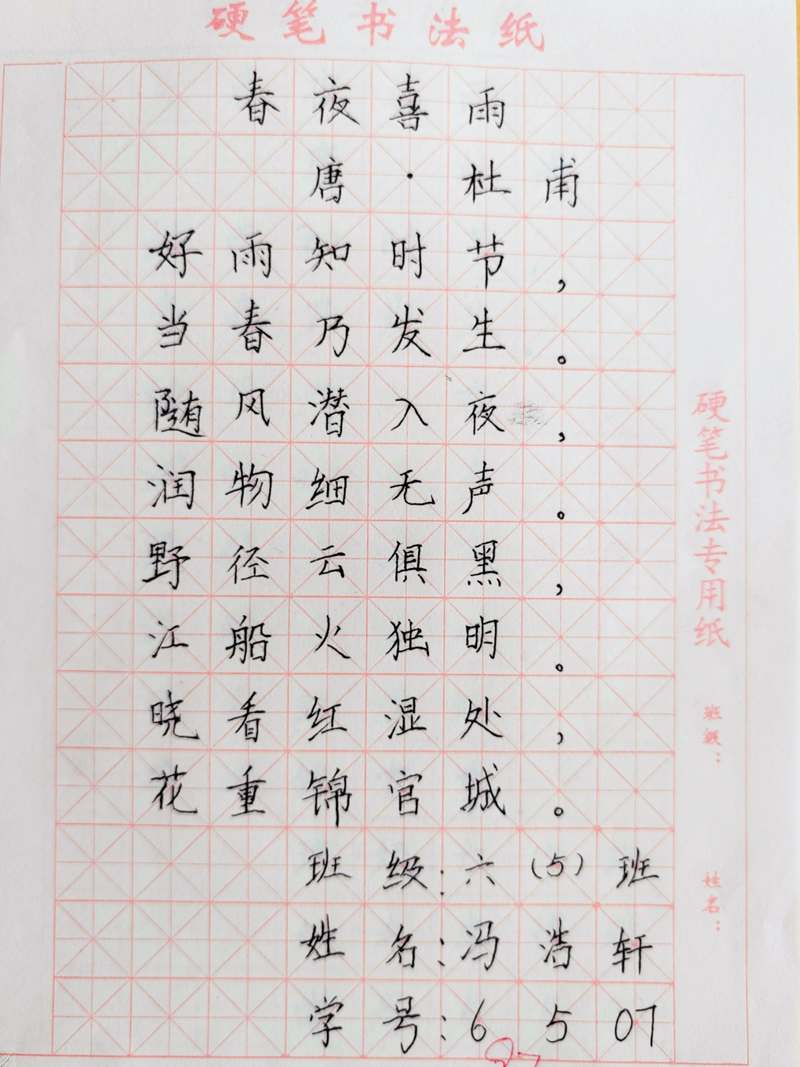 硬笔书法纸
春夜喜雨
唐·杜甫
好雨知时节，
当春乃发生。
随风潜入夜，
润物细无声。
野径云俱黑，
江船火独明。
晓看红湿处，
花重锦官城。
班级：六（5）班
姓名：冯浩轩
学号：6507
硬笔书法专用纸
班级：
姓名：